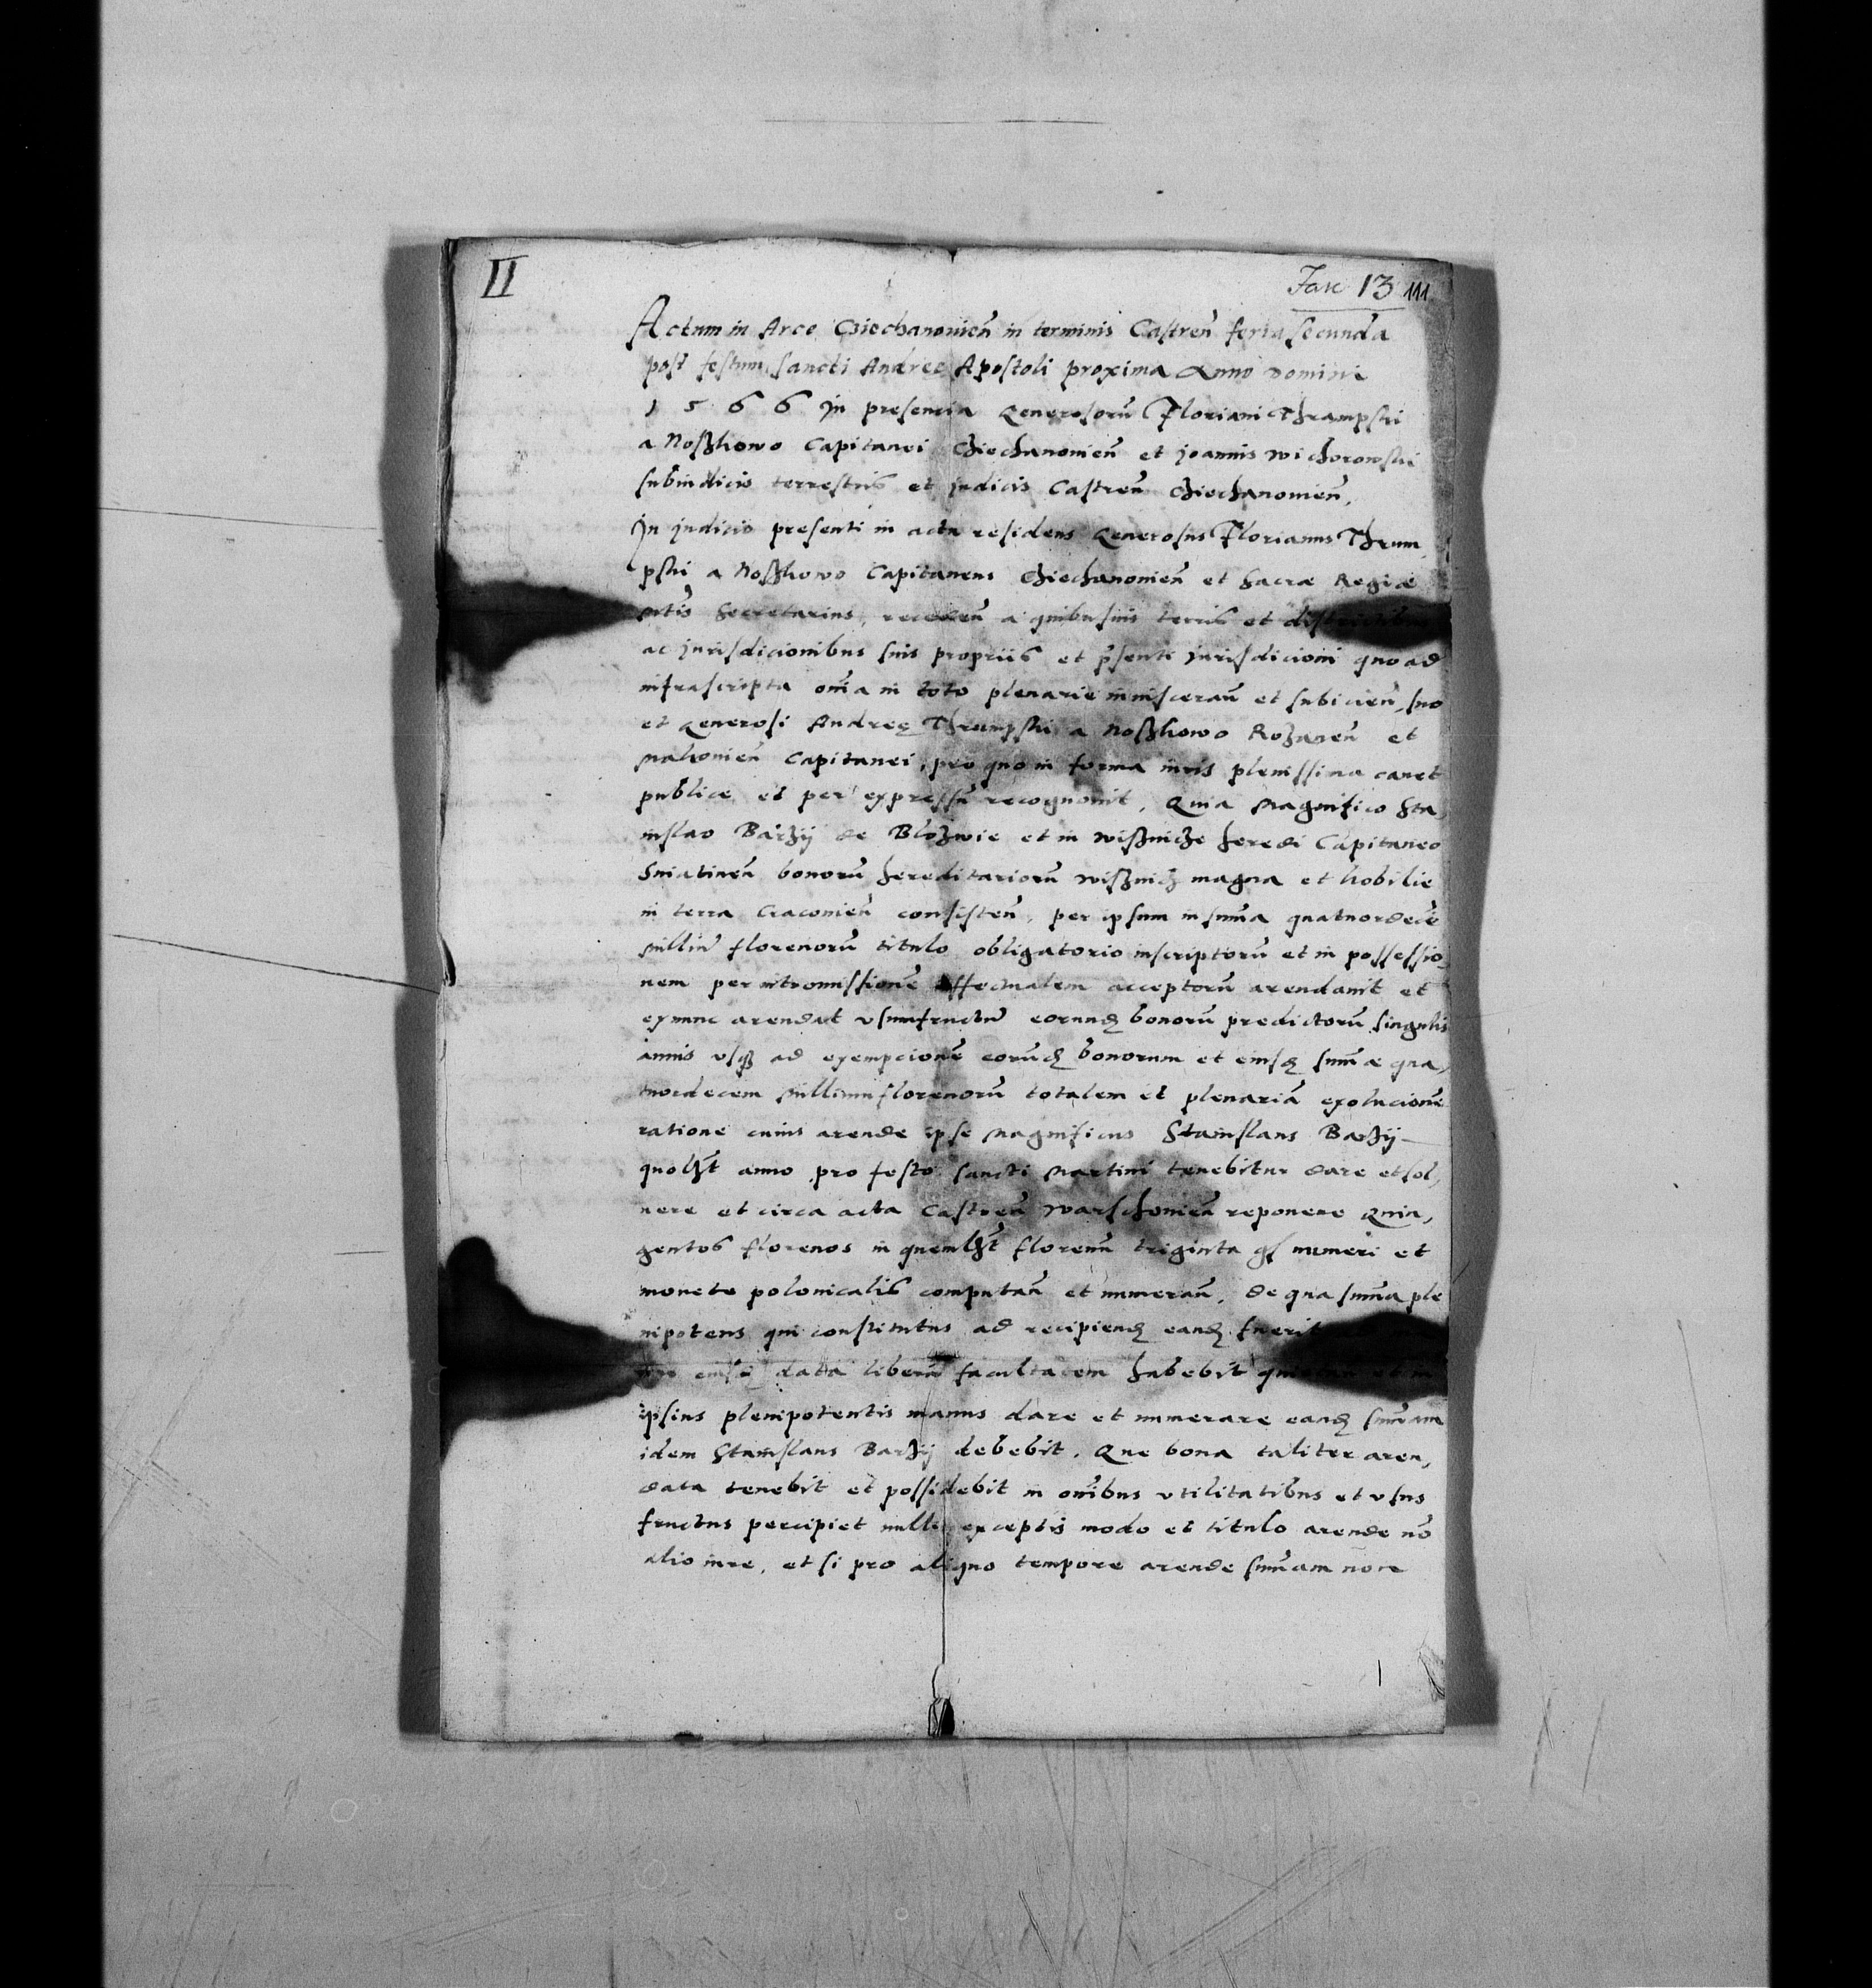 II
Fasc 13 111
Actum in Arce Cziechanovien̄ in terminis Castren̄ feria secunda
post festum sancti Andree Apostoli proxima Anno Domini
1566 In presencia generosorū Floriani Thrampski
a Noszkowo Capitanei Cziechanovien̄ et Joannis Wichorowski
subiudicis terrestris et judicis Castren̄ Cziechanovien̄.
In judicio presenti in actu residens generosus Florianus Thrum
pski a Noszkowo Capitaneus Cziechanovien̄ et Sacræ Regiæ
Mtis Secretarius, receden̄ a quibusuis terris et districtibus
ac jurisdicionibus suis propriis et p̄senti jurisdicioni quo ad
infrascripta om̄ia in toto plenarie inuisceran̄ et subicien̄, suo
et generosi Andreę Thrampski a Noszkowo Rozanen̄ et
Makovien̄ Capitanei, pro quo in forma iuris plenissima cauet
publice et per expressū recognouit. Quia Magnifico Sta,
nislao Barzij de Blozwie et in Wisznicze heredi Capitaneo
Sniatinen̄ bonorū hereditariorū Wisznicz magna et kobilie
in terra Cracouien̄ consisten̄, per ipsum in sum̄a quatuordecē
Milliū florenorū titulo obligatorio inscriptorū et in possessio,
nem per intromissionē effectualem acceptorū arendauit et
exnunc arendat vsumfructū eorundꝫ bonorū predictorū singulis
annis vsqꝫ ad exempcionē eorūdꝫ bonorum et eiusdꝫ sum̄æ qua,
tuordecem Millium florenorū totalem et plenariā exolucionē
ratione cuius arende ipse Magnificus Stanislaus Barzij
quolꝫt anno pro festo sancti Martini tenebitur dare et sol,
uere et circa acta Castren̄ Warschouien̄ reponere Quin,
gentos florenos in quemlꝫt florenū triginta gſ numeri et
monete polonicalis computan̄ et numeran̄, de qua sum̄a ple
nipotens qui constitutus ad recipiendꝫ eandꝫ fuerit
data liberā facultatem habebit
ipsius plenipotentis manus dare et numerare eandꝫ sum̄am
idem Stanislaus Barzij debebit. Que bona taliter aren,
data tenebit et possidebit in om̄ibus vtilitatibus et vsus
fructus percipiet nullis exceptis modo et titulo arende nō
alio iure, et si pro aliquo tempore arende sum̄am non
1